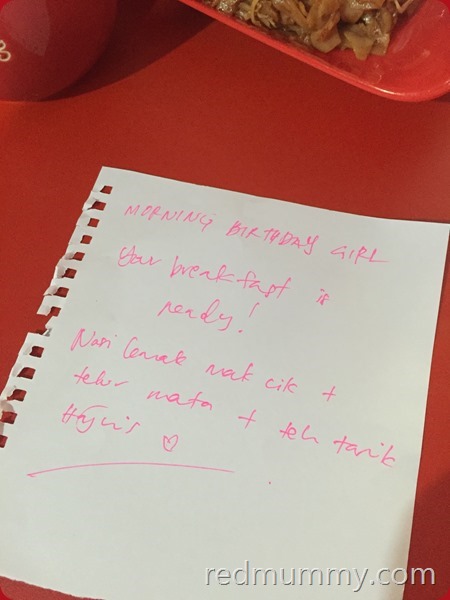 MORNING BIRTHDAY GIRL
Your breakfast is
ready!
Nasi lemak mak cik +
telur mata + teh tarik
redmummy.com